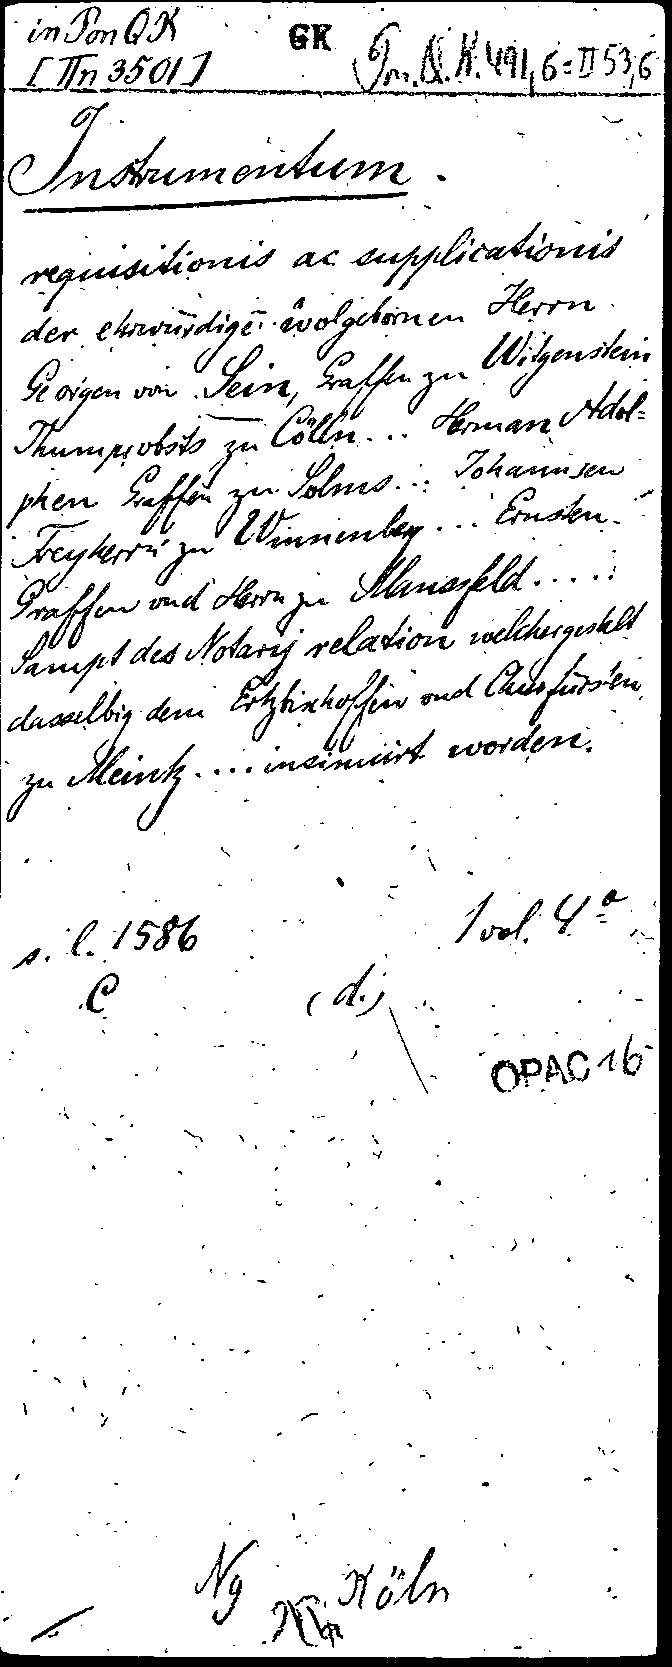 in Pon QK
[IIn 3501]
GK
Pon. Q. K. 491,6 = II 53,6
Instrumentum.
requisitionis ac supplicationis
der ehrwürdigē wolgebornen Herrn
Georgen von Sein, Graffen zu Witgenstein
Thumprobsts zu Cölln... Herman Adol=
phen Graffen zu Solms... Johannsen
Freyherrn zu Winnenberg... Ernsten
Graffen vnd Herrn zu Mansfeld.....
Sampt des Notarij relation welchergestalt
dasselbig dem Ertzbischoffen vnd Churfürsten
zu Meintz.... insinuirt worden.
s. l. 1586
1 vol. 4°
C
(d.)
OPAC 16
Ng
Köln